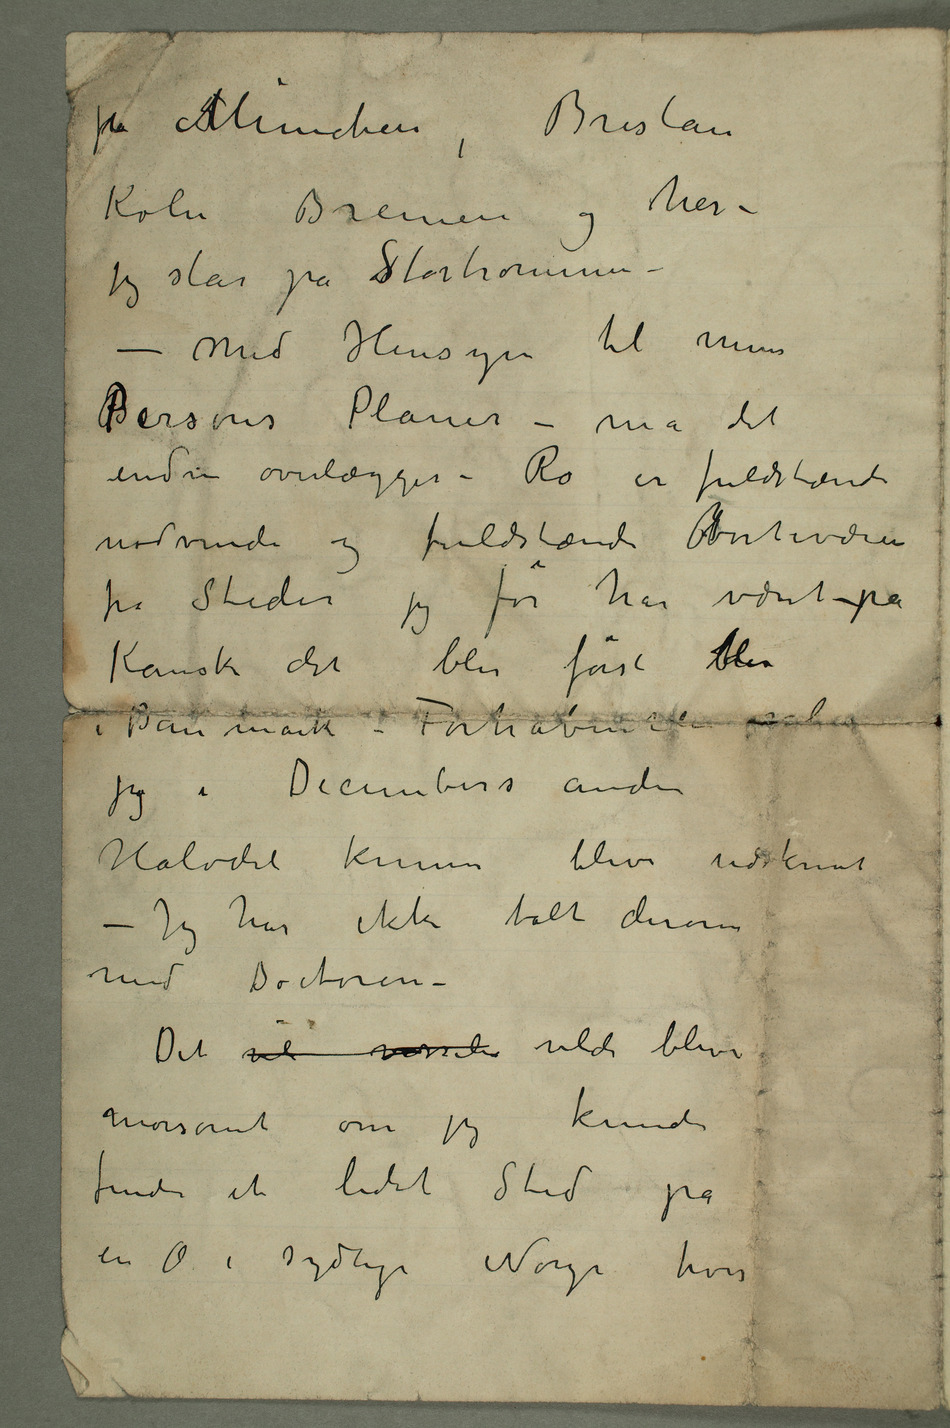 på München, Breslau
Køln Bremen og her –
jeg slår på Stortrommen –
– Med Hensyn til min
Persons Planer – må det
endnu overlægges – Ro er fuldstændi
nødvendi og fuldstændi Borteværen
fra Steder jeg før har været på
Kanske det blir først
i Danmark – Forhåbentli
jeg i Decembers anden
Halvdel kunne blive udskrivet
– Jeg har ikke talt derom
med Doctoren –
Det vil vilde blive
morsomt om jeg kunde
finde et lidet Sted på
en Ø i sydlige Norge hvis